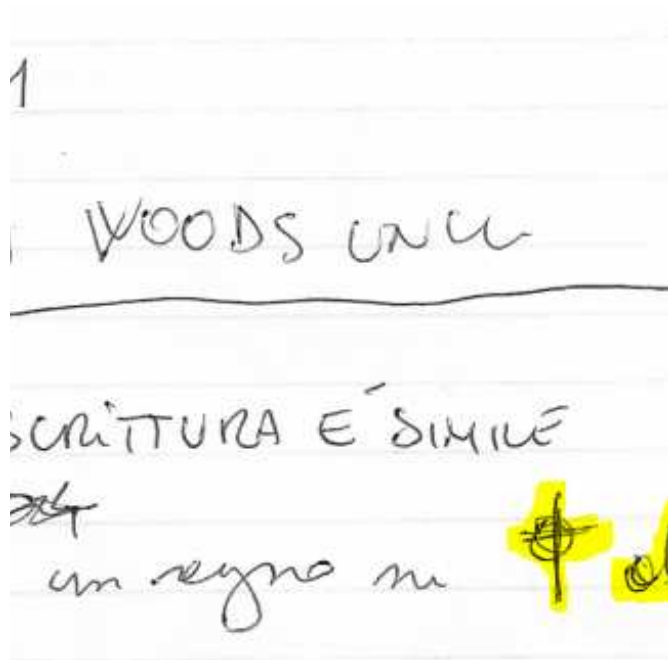 1
WOODS
SCRITTURA É SIMILE
un segno su